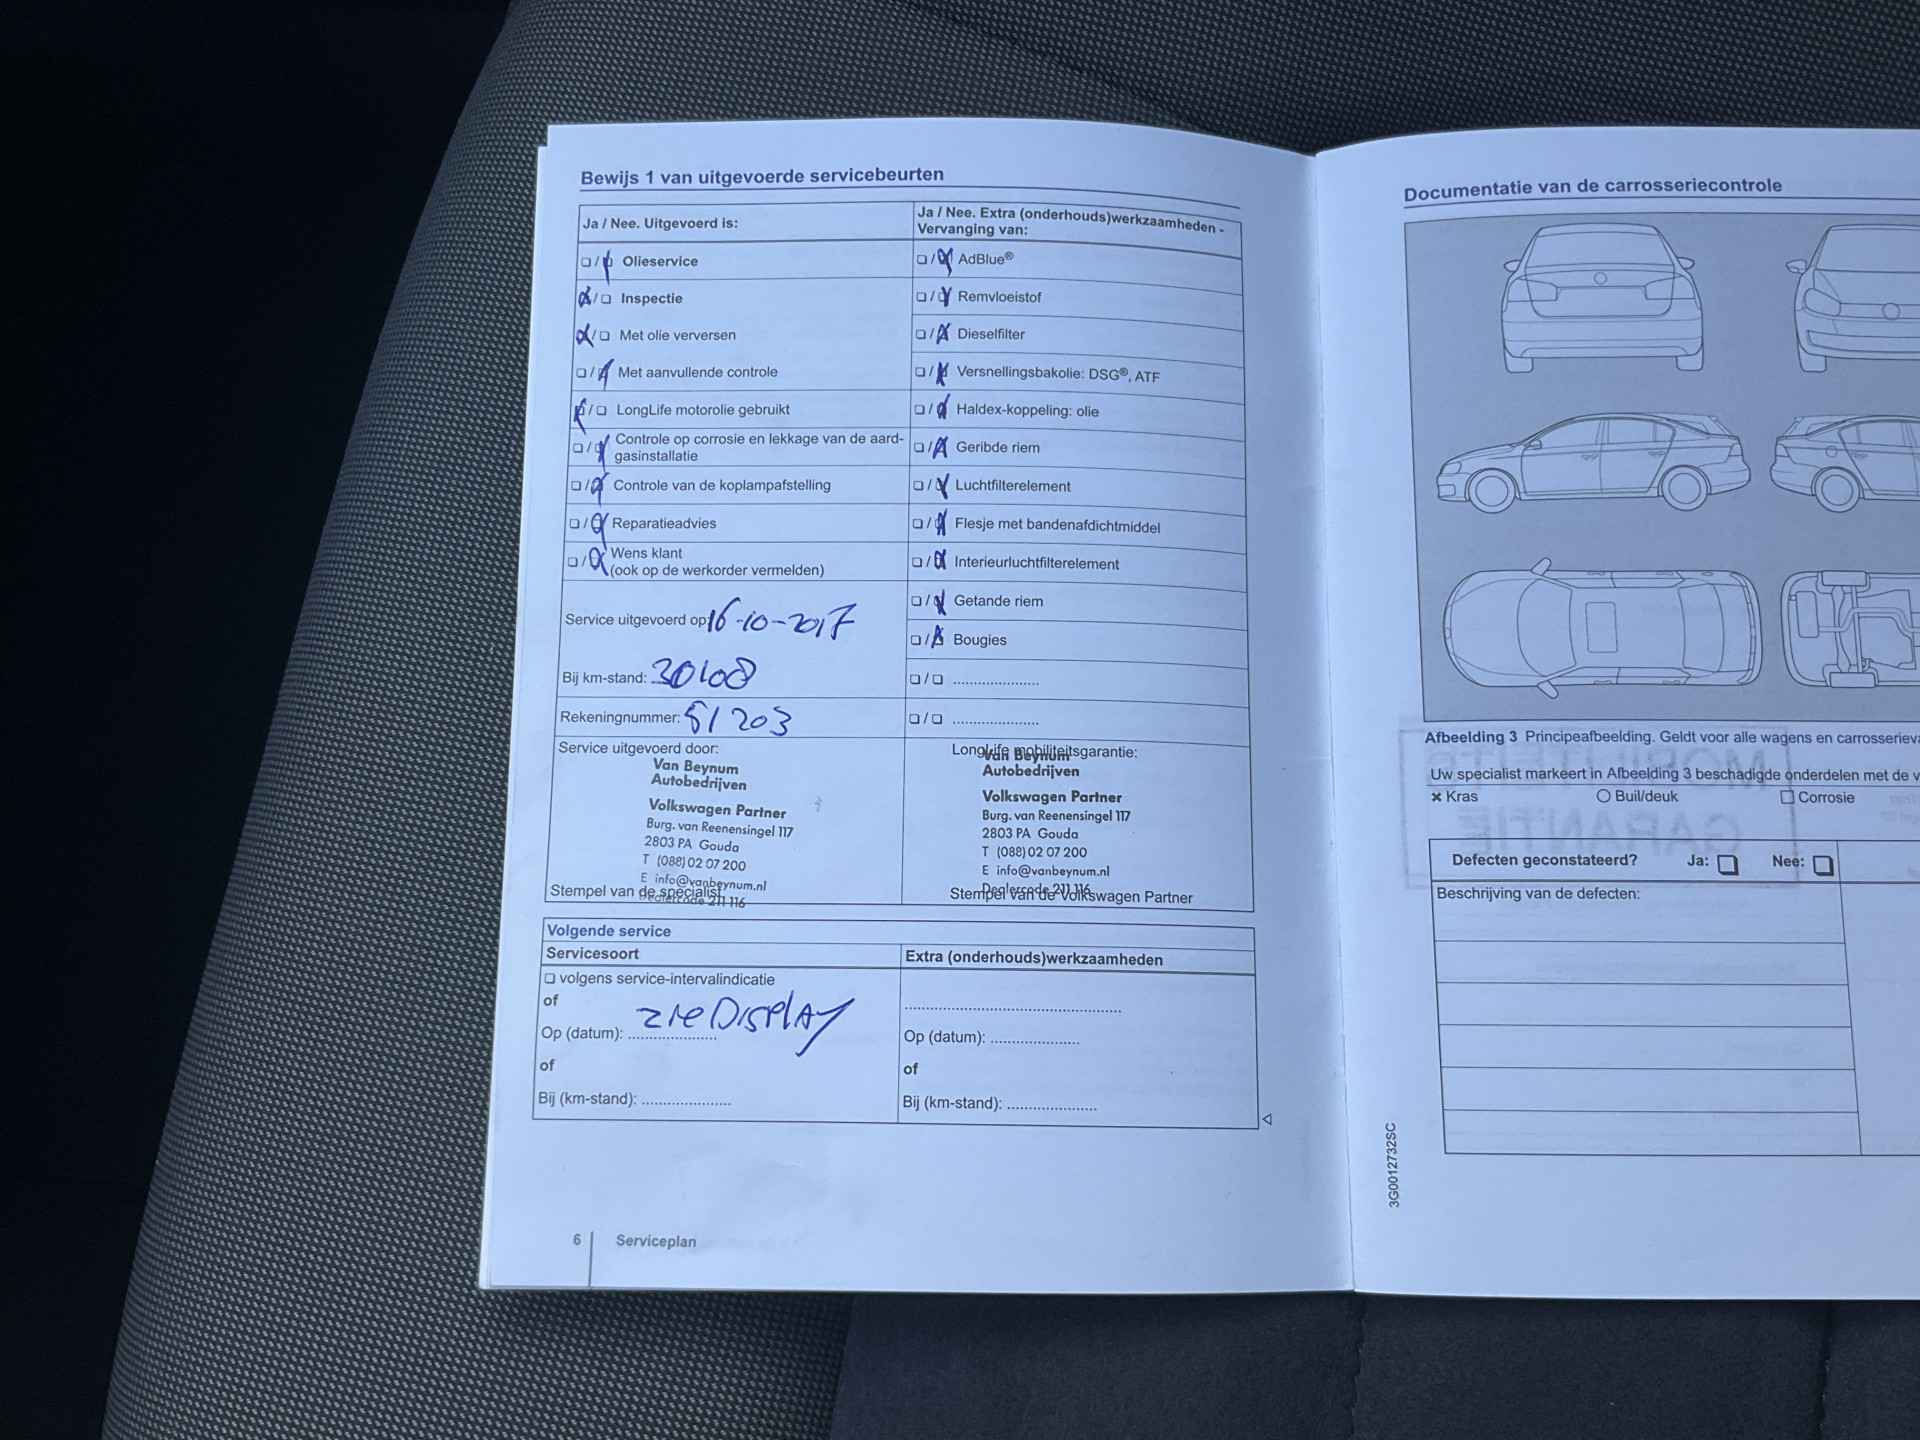 Bewijs 1 van uitgevoerde servicebeurten
Ja / Nee. Uitgevoerd is:
Olieservice
Inspectie
Met olie verversen
Met aanvullende controle
LongLife motorolie gebruikt
Controle op corrosie en lekkage van de aard-
gasinstallatie
Controle van de koplampafstelling
Reparatieadvies
Wens klant
(ook op de werkorder vermelden)
Service uitgevoerd op: 16-10-2017
Bij km-stand: 30108
Rekeningnummer: 51203
Ja / Nee. Extra (onderhouds)werkzaamheden -
Vervanging van:
AdBlue®
Remvloeistof
Dieselfilter
Versnellingsbakolie: DSG®, ATF
Haldex-koppeling: olie
Geribde riem
Luchtfilterelement
Flesje met bandenafdichtmiddel
Interieurluchtfilterelement
Getande riem
Bougies
Service uitgevoerd door:
Van Beynum
Autobedrijven
Volkswagen Partner
Burg. van Reenensingel 117
2803 PA Gouda
T (088) 02 07 200
E info@vanbeynum.nl
Dealercode 211 116
Stempel van de specialist
LongLife mobiliteitsgarantie:
Van Beynum
Autobedrijven
Volkswagen Partner
Burg. van Reenensingel 117
2803 PA Gouda
T (088) 02 07 200
E info@vanbeynum.nl
Dealercode 211 116
Stempel van de Volkswagen Partner
Volgende service
Servicesoort
volgens service-intervalindicatie
of
zie Display
Op (datum): ....................
of
Bij (km-stand): ....................
Extra (onderhouds)werkzaamheden
Op (datum): ....................
of
Bij (km-stand): ....................
6
Serviceplan
Documentatie van de carrosseriecontrole
Afbeelding 3 Principeafbeelding. Geldt voor alle wagens en
Uw specialist markeert in Afbeelding 3 beschadigde onderdelen met de
Kras
Buil/deuk
Corrosie
MOBILITEITS
GARANTIE
Defecten geconstateerd? Ja: Nee:
Beschrijving van de defecten:
3G0012732SC